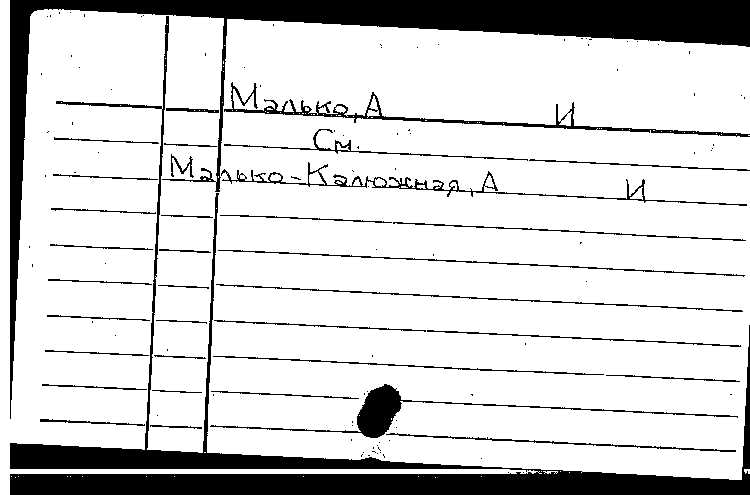 Малько, А И
См.
Малько-Калюжная, А И